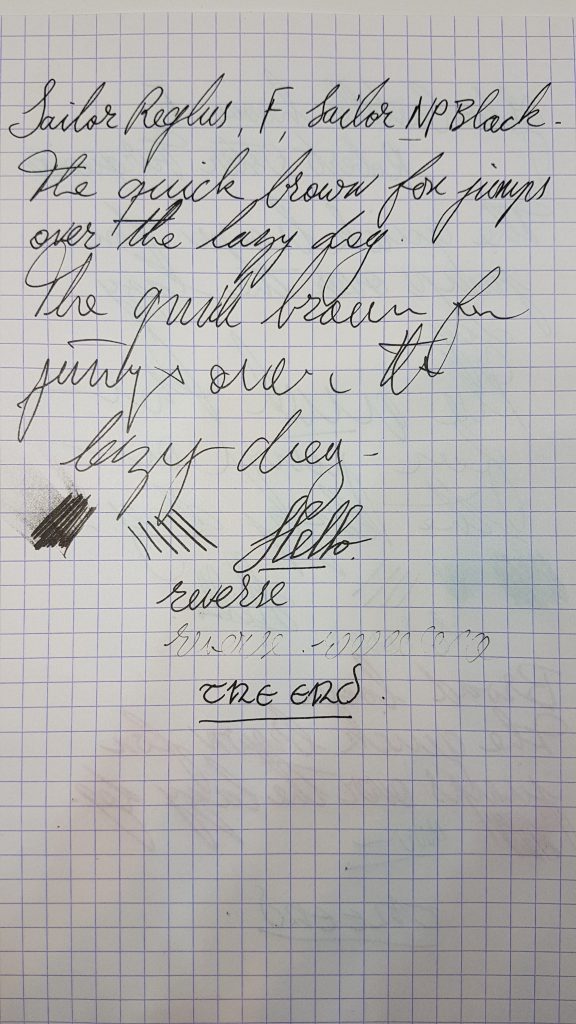 Sailor Reglus, F, Sailor NP Black.
The quick brown fox jumps
over the lazy dog.
The quick brown fox
jumps over the
lazy dog-
Hello.
reverse
THE END.